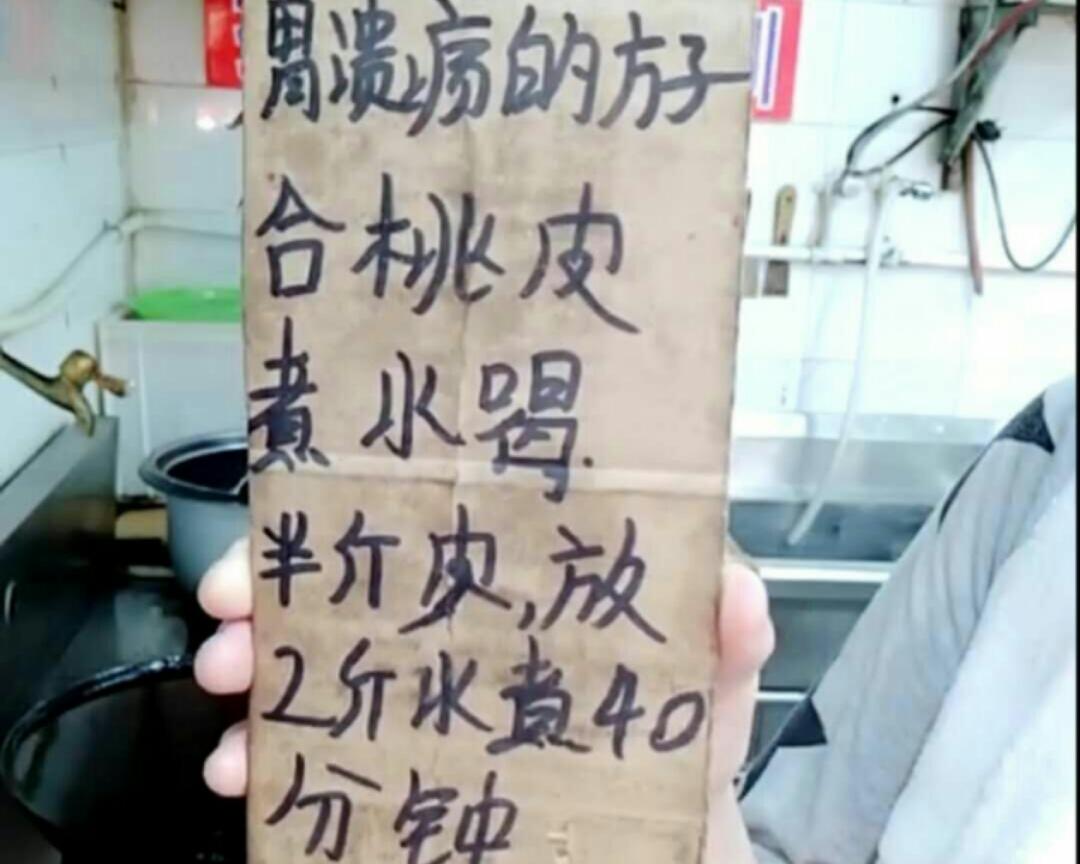 胃溃疡的方子
合桃皮
煮水喝.
半斤皮,放
2斤水煮40
分钟